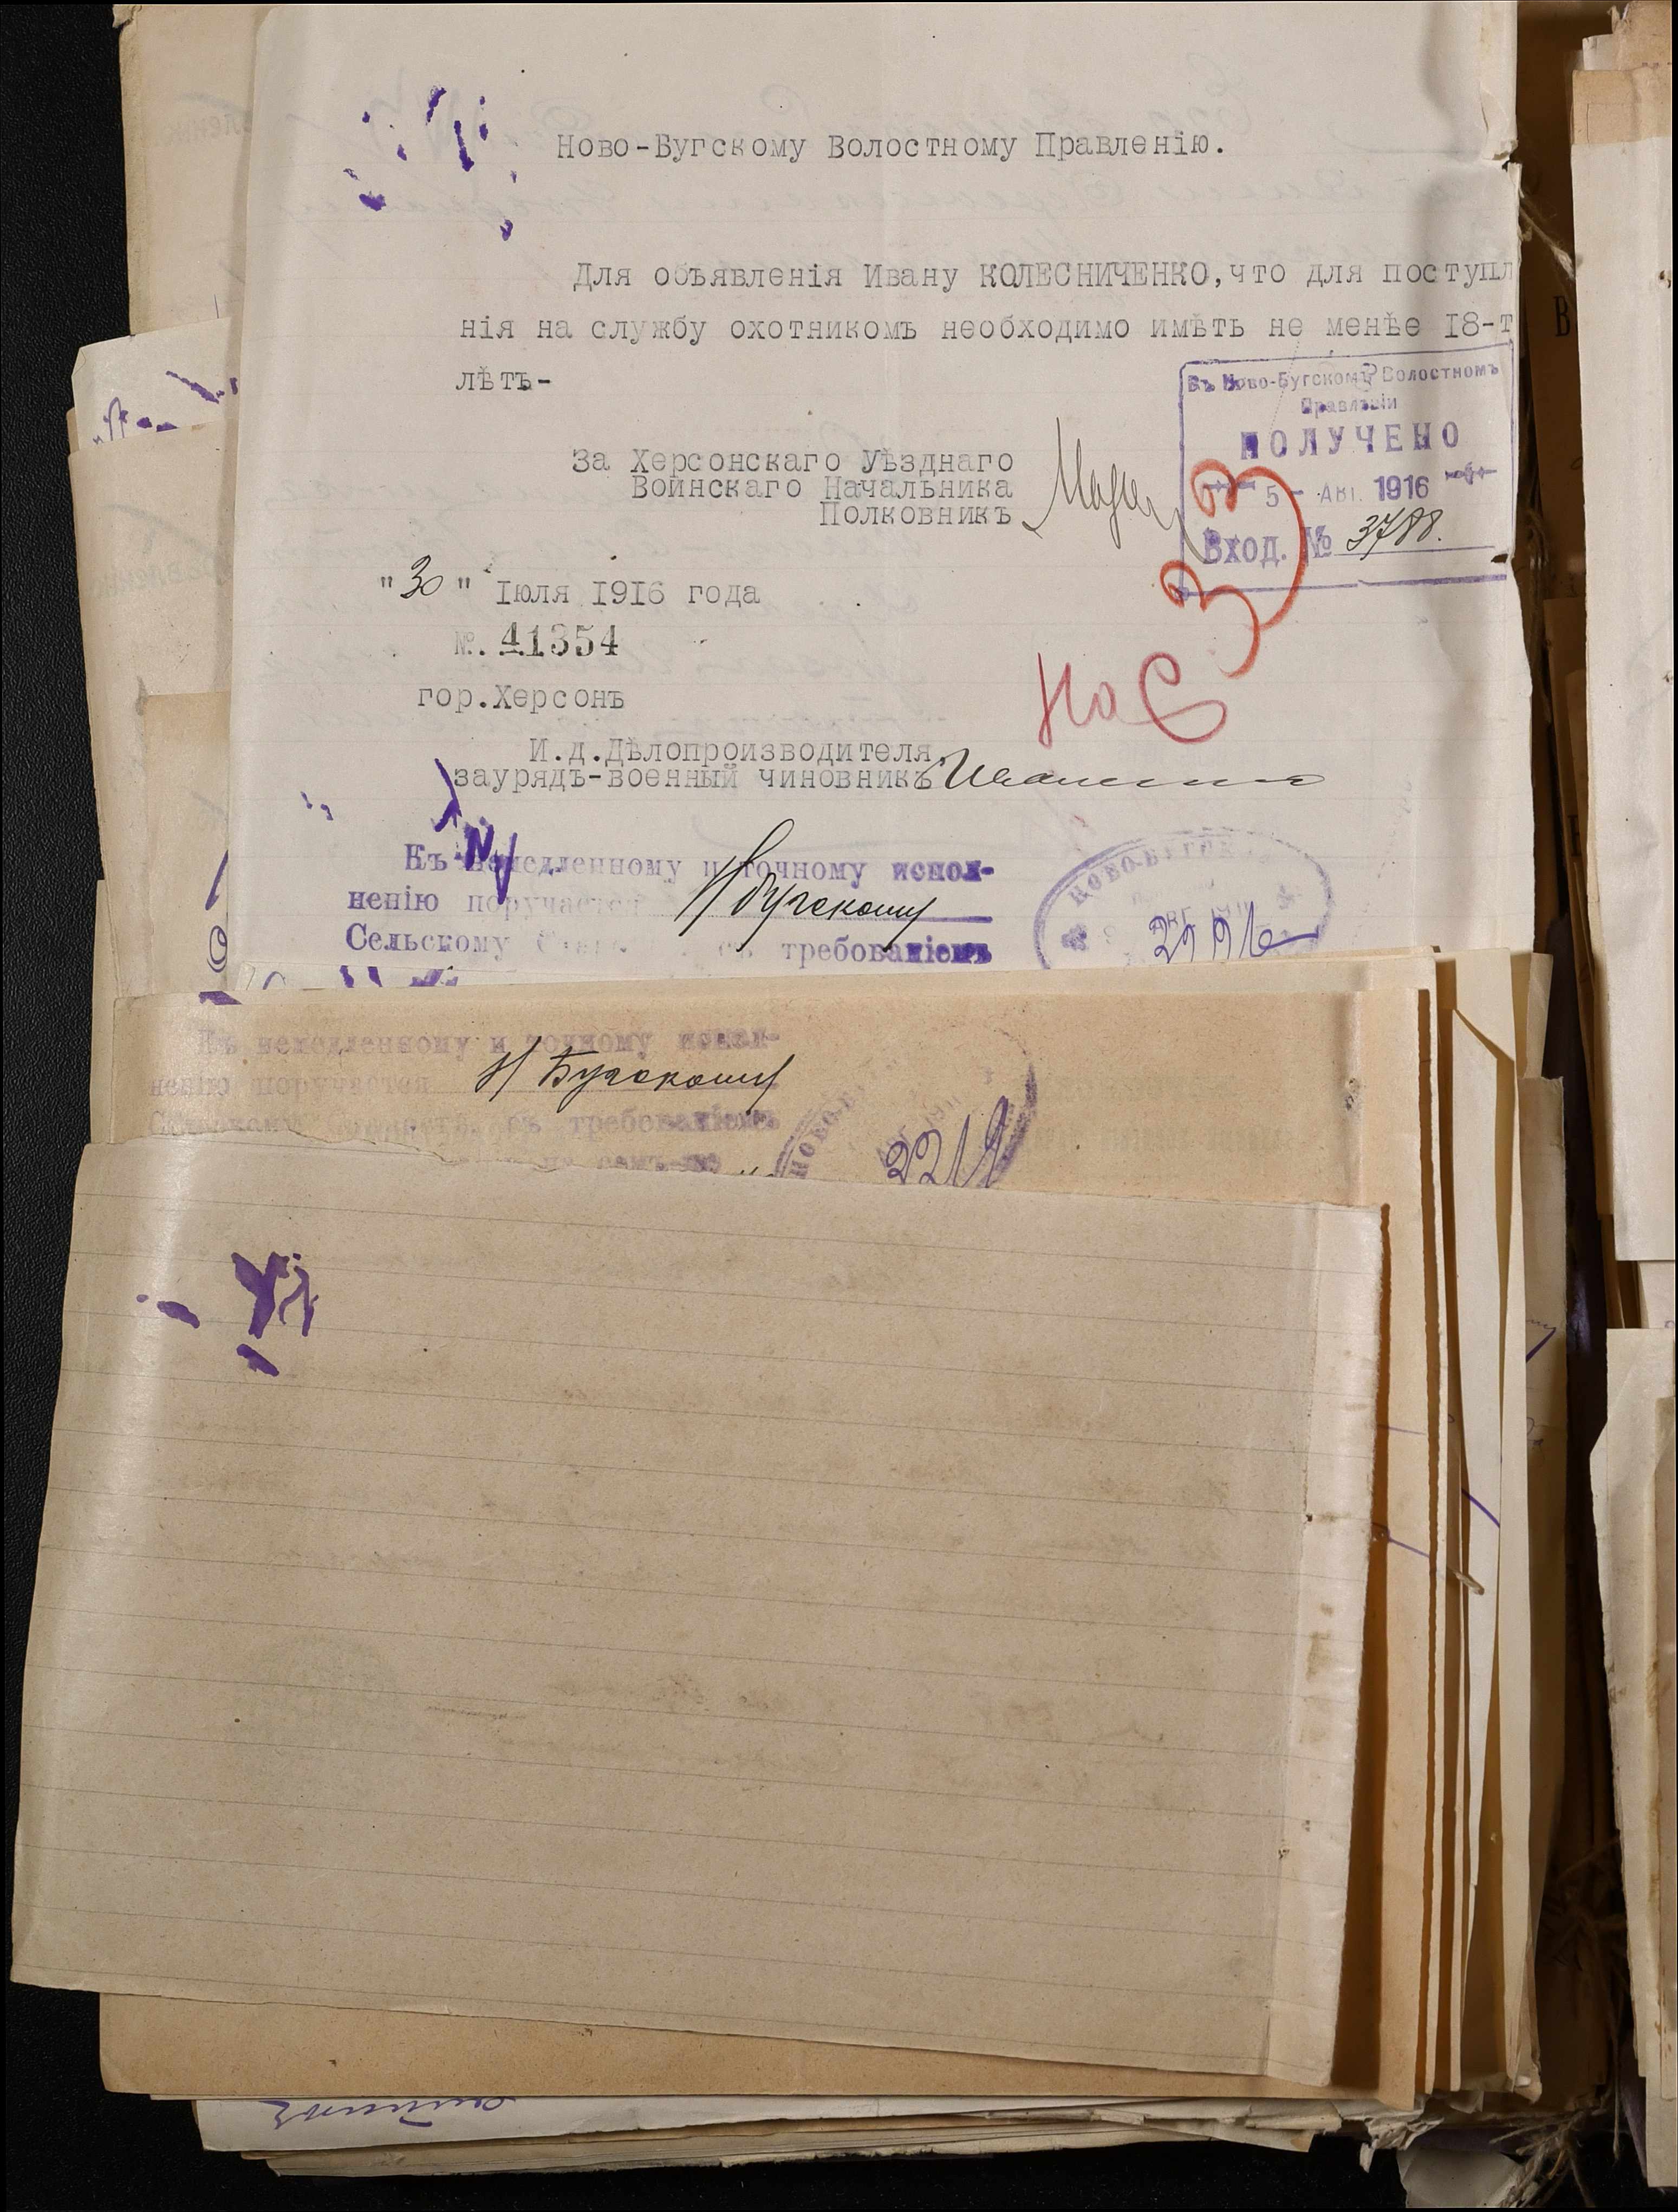 Ново-Бугскому Волостному Правленію.
Для объявленія Ивану КОЛЕСНИЧЕНКО, что для поступл
нія на службу охотникомъ необходимо имѣть не менѣе 18-т
лѣтъ-
Въ Ново-Бугскомъ Волостномъ
Правленіи
ПОЛУЧЕНО
5 - АВГ. 1916
Вход. № 3788.
За Херсонскаго Уѣзднаго
Воинскаго Начальника
Полковникъ
"30" Іюля 1916 года
№. 41354
гор.Херсонъ
И.д.Дѣлопроизводителя,
заурядъ-военный чиновникъ
Къ немедленному и точному испол-
ненію поручается Н Бугскому
Сельскому съ требованіемъ
НОВО-БУГСК
Къ немедленному и точному испол-
ненію поручается Н Бугскому
Сельскому съ требованіемъ
НОВО
2219